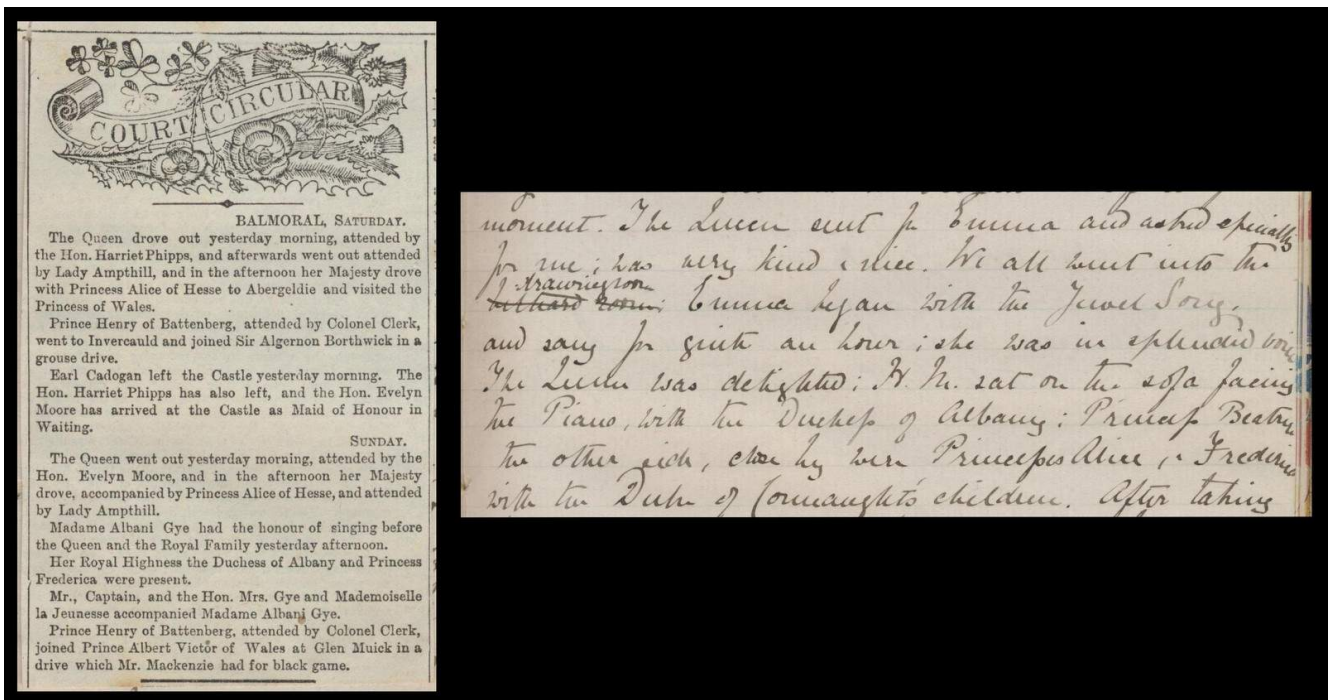 COURT CIRCULAR
BALMORAL, SATURDAY.
The Queen drove out yesterday morning, attended by
the Hon. Harriet Phipps, and afterwards went out attended
by Lady Ampthill, and in the afternoon her Majesty drove
with Princess Alice of Hesse to Abergeldie and visited the
Princess of Wales.
Prince Henry of Battenberg, attended by Colonel Clerk,
went to Invercauld and joined Sir Algernon Borthwick in a
grouse drive.
Earl Cadogan left the Castle yesterday morning. The
Hon. Harriet Phipps has also left, and the Hon. Evelyn
Moore has arrived at the Castle as Maid of Honour in
Waiting.
SUNDAY.
The Queen went out yesterday morning, attended by the
Hon. Evelyn Moore, and in the afternoon her Majesty
drove, accompanied by Princess Alice of Hesse, and attended
by Lady Ampthill.
Madame Albani Gye had the honour of singing before
the Queen and the Royal Family yesterday afternoon.
Her Royal Highness the Duchess of Albany and Princess
Frederica were present.
Mr., Captain, and the Hon. Mrs. Gye and Mademoiselle
la Jeunesse accompanied Madame Albani Gye.
Prince Henry of Battenberg, attended by Colonel Clerk,
joined Prince Albert Victor of Wales at Glen Muick in a
drive which Mr. Mackenzie had for black game.
moment. The Queen sent for Emma and asked specially
for me; was very kind & nice. We all went into the
drawingroom
billiard room; Emma began with the Jewel Song,
and sang for quite an hour; she was in splendid voice
The Queen was delighted: H. M. sat on the sofa facing
the Piano, with the Duchess of Albany; Princess Beatrice
the other side, close by were Princesses Alice, & Frederica
with the Duke of Connaught's children. After taking